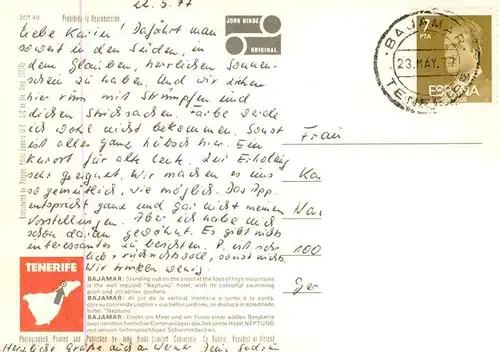 22.5.77
2CT 49 Prohibida la Reproduccion.
JOHN HINDE
ORIGINAL
7
PTA
ESPAÑA
BAJAMAR
23.MAY.77
TENERIFE
Liebe Karin! Da fährt man
soweit in den Süden, in
dem Glauben, herrlichen Sonnen-
schein zu haben. Und wir ziehen
hier rum mit Strümpfen und
dicken Stricksachen. Farbe werde
ich wohl nicht bekommen. Sonst
ist alles ganz hübsch hier. Ein
Kurort für alte Leute. Zur Erholung
sehr geeignet. Wir machen es uns
so gemütlich, wie möglich. Das App.
entspricht ganz und gar nicht meinen
Vorstellungen. Aber ich habe mich
schon daran gewöhnt. Es gibt nichts
interessantes zu berichten. P. ist sehr
lieb + rücksichtsvoll, sonst nichts.
Wir trinken wenig.
Frau
Ka
100
TENERIFE
BAJAMAR: Standing out on the coast at the foot of high mountains
is the well reputed "Neptuno" hotel, with its colourful swimming
pool and attractive gardens.
BAJAMAR: Al pie de la vertical montaña y junto a la costa,
con su colorida piscina y sus bellos jardines, se destaca el acreditado
hotel "Neptuno".
BAJAMAR: Direkt am Meer und am Fusse einer wilden Bergkette
beherrscht von herrlichen Gartenanlagen das bekannte Hotel NEPTUNO
mit seinem farbenprächtigen Schwimmbecken.
Photographed Printed and Published by John Hinde Limited Cabinteely Co. Dublin, Republic of Ireland
Herzliche Grüße auch an Werner Deine